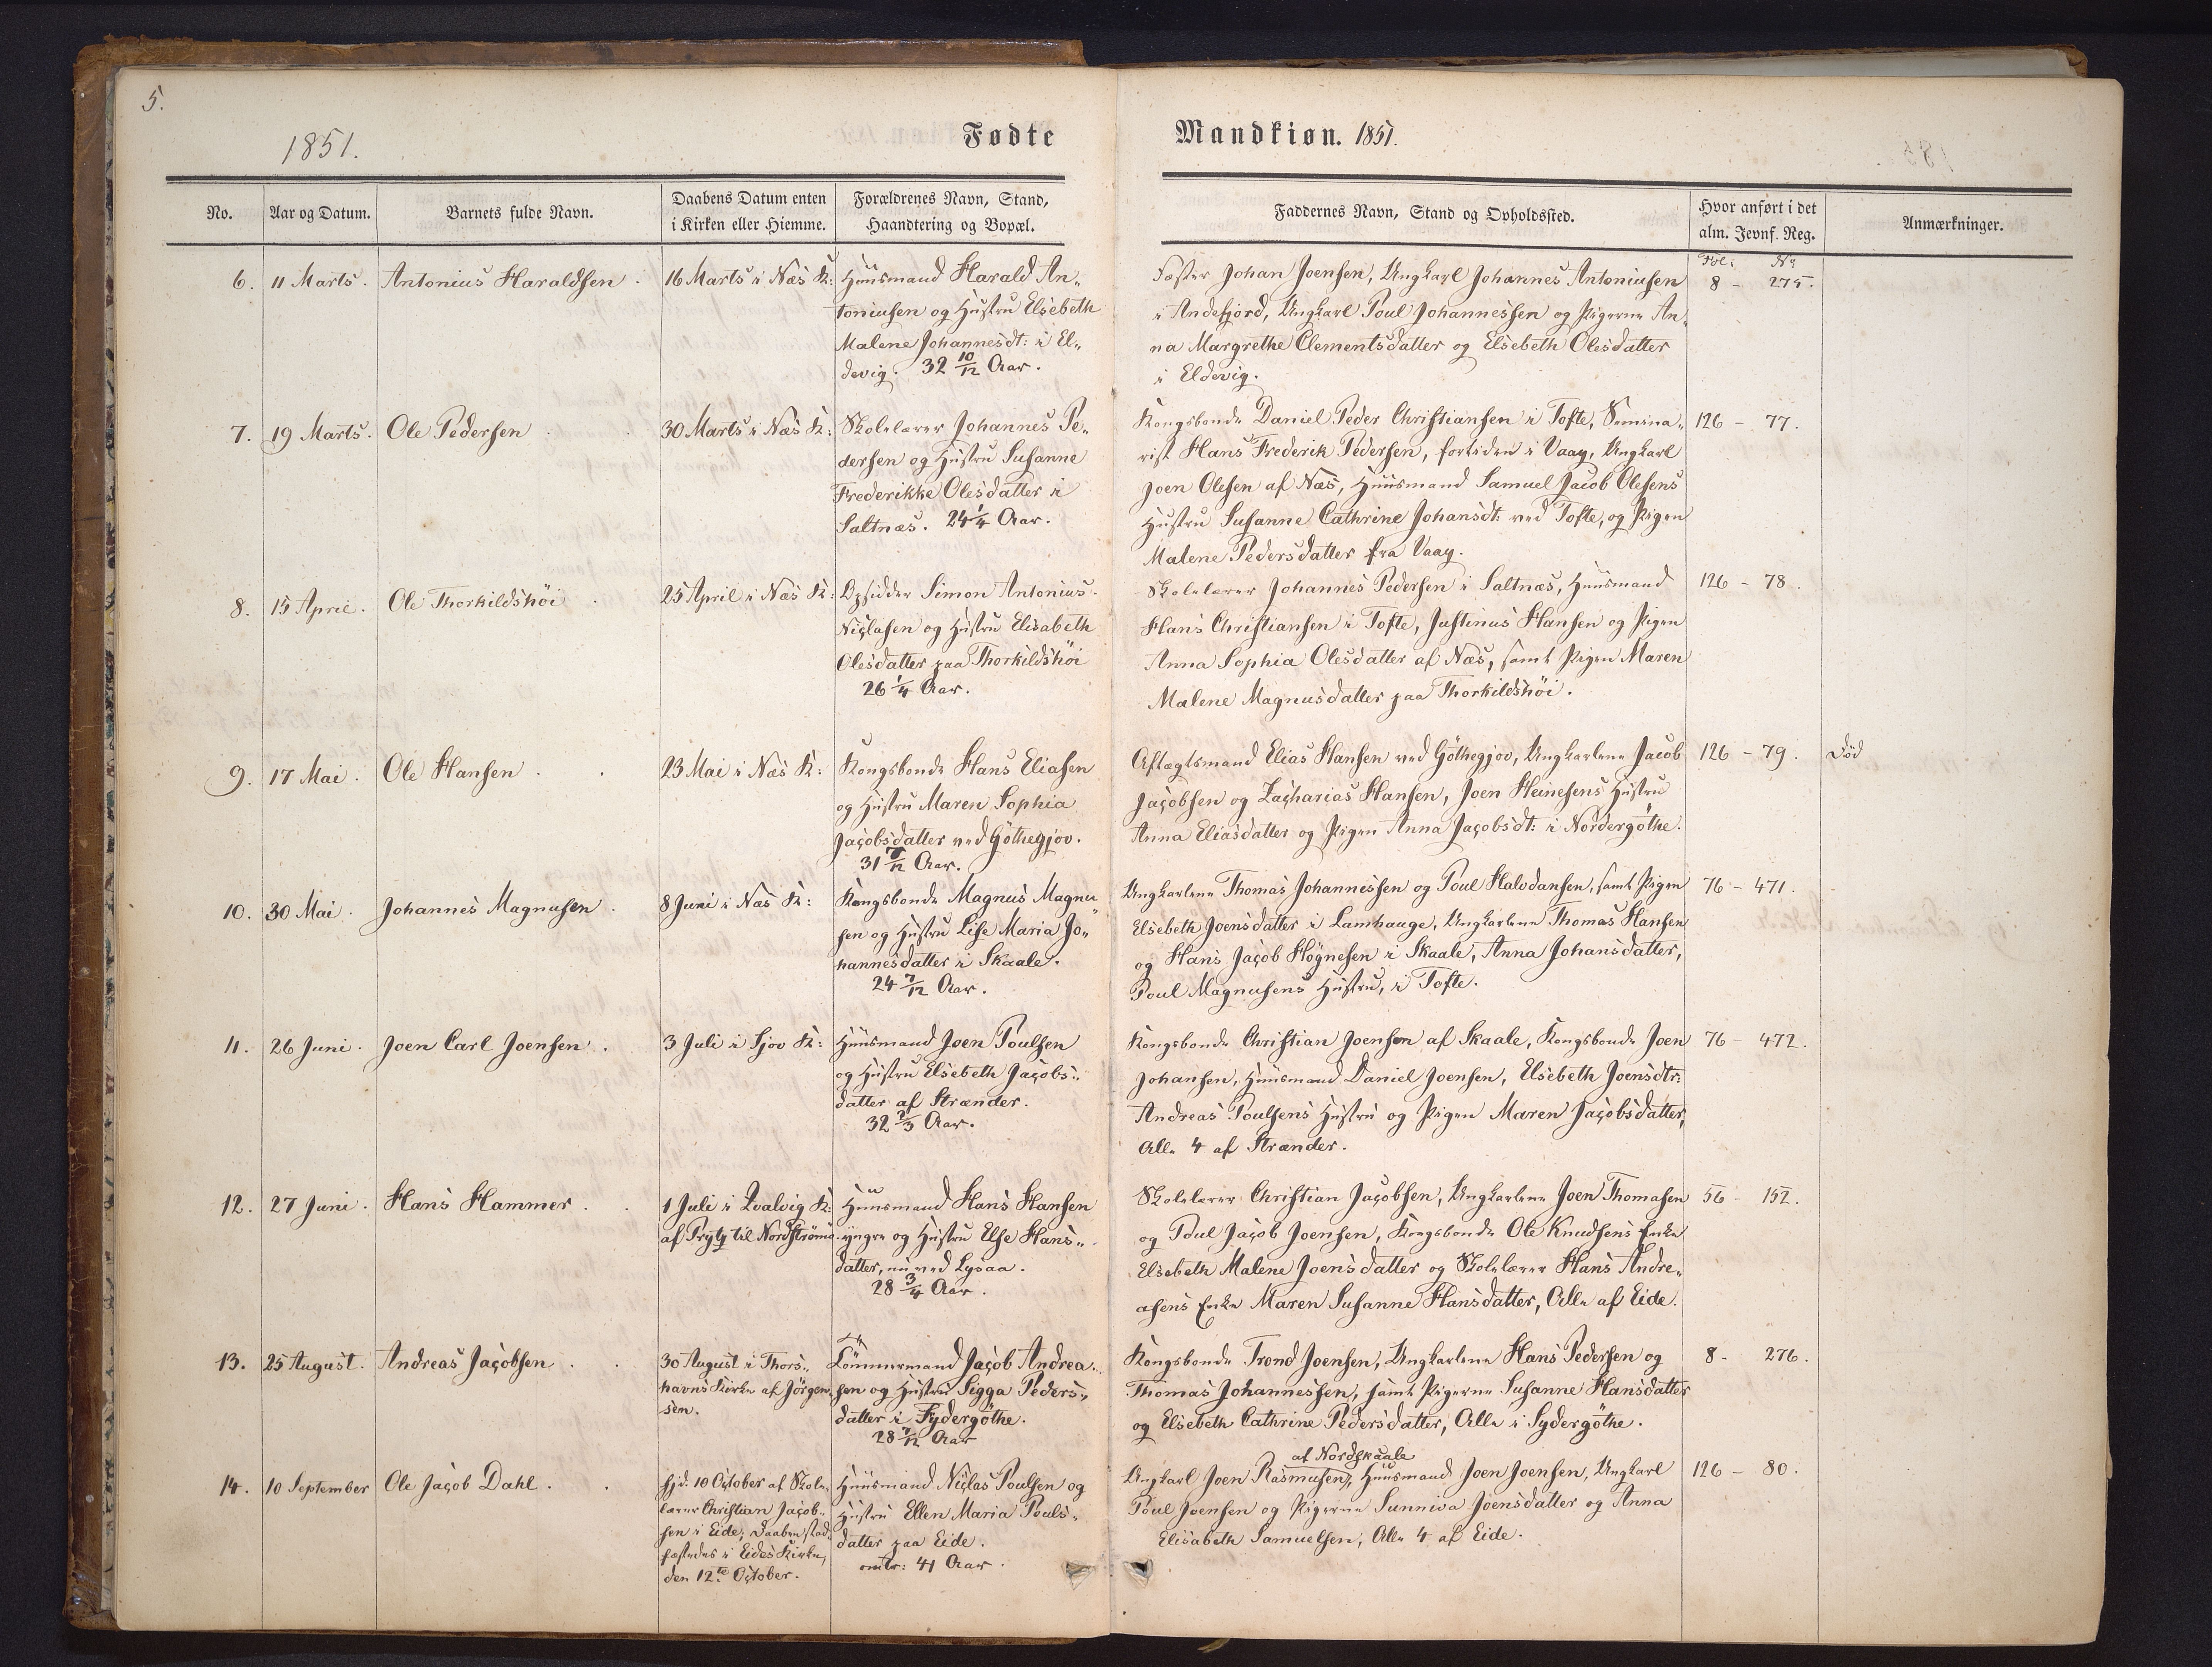 5.
1851.
Fødte
Mandkiøn. 1851.
No.
Aar og Datum.
Barnets fulde Navn.
Daabens Datum enten
i Kirken eller Hiemme.
Forældrenes Navn, Stand,
Haandtering og Bopæl.
Faddernes Navn, Stand og Opholdssted.
Hvor anført i det
alm. Jevnf. Reg.
Anmærkninger.
Fol: No
6. 11 Marts. Antonius Haraldsen. 16 Marts i Næs K:
Huusmand Harald An-
toniusen og Hustru Elsebeth
Malene Johannesdt: i El-
devig. 32 10/12 Aar.
Fæster Johan Joensen, Ungkarl Johannes Antoniusen
i Andefjord, Ungkarl Poul Johannessen og Pigerne An-
na Margrethe Clementsdatter og Elsebeth Olesdatter
i Eldevig.
8 - 275.
7. 19 Marts. Ole Pedersen 30 Marts i Næs K:
Skolelærer Johannes Pe-
dersen og Hustru Susanne
Frederikke Olesdatter i
Saltnæs. 24 1/4 Aar.
Kongsbonde Daniel Peder Christiansen i Tofte, Semina-
rist Hans Frederik Pedersen, fortiden i Vaag, Ungkarl
Joen Olesen af Næs, Huusmand Samuel Jacob Olesens
Hustru Susanne Cathrine Johansdt: ved Tofte, og Pigen
Malene Pedersdatter fra Vaag.
126 - 77.
8. 15 April. Ole Thorkildshöi 25 April i Næs K:
Opsidder Simon Antonius
Niclasen og Hustru Elisabeth
Olesdatter paa Thorkildshöi
26 1/4 Aar.
Skolelærer Johannes Pedersen i Saltnæs, Huusmand
Hans Christiansen i Tofte, Justinus Hansen og Pigen
Anna Sophia Olesdatter af Næs, samt Pigen Maren
Malene Magnusdatter paa Thorkildshöi.
126 - 78.
9. 17 Mai. Ole Hansen 23 Mai i Næs K:
Kongsbonde Hans Eliasen
og Hustru Maren Sophia
Jacobsdatter ved Göthegjov.
31 7/12 Aar.
Aftægtsmand Elias Hansen ved Göthegjov, Ungkarlene Jacob
Jacobsen og Zacharias Hansen, Joen Heinesens Hustru
Anna Eliasdatter og Pigen Anna Jacobsdt: i Nordergöthe.
126 - 79.
Död
10. 30 Mai. Johannes Magnusen. 8 Juni i Næs K:
Kongsbonde Magnus Magnu-
sen og Hustru Lise Maria Jo-
hannesdatter i Skaale.
24 7/12 Aar.
Ungkarlene Thomas Johannessen og Poul Halvdansen, samt Pigen
Elsebeth Joensdatter i Lamhauge, Ungkarlene Thomas Hansen
og Hans Jacob Högnesen i Skaale, Anna Johansdatter,
Poul Magnusens Hustru, i Tofte.
76 - 471.
11. 26 Juni. Joen Carl Joensen. 3 Juli i Sjov K:
Huusmand Joen Poulsen
og Hustru Elsebeth Jacobs-
datter af Strænder.
32 2/3 Aar.
Kongsbonde Christian Joensen af Skaale, Kongsbonde Joen
Johansen, Huusmand Daniel Joensen, Elsebeth Joensdtr:
Andreas Poulsens Hustru og Pigen Maren Jacobsdatter,
Alle 4 af Strænder.
76 - 472.
12. 27 Juni. Hans Hammer. 1 Juli i Qvalvig K:
af Prytz til Nordströmö.
Huusmand Hans Hansen
yngre og Hustru Else Hans-
datter, nu ved Lysaa.
28 3/4 Aar.
Skolelærer Christian Jacobsen, Ungkarlene Joen Thomasen
og Poul Jacob Joensen, Kongsbonde Ole Knudsens Enke
Elsebeth Malene Joensdatter og Skolelærer Hans Andre-
asens Enke Maren Susanne Hansdatter, Alle af Eide.
56 - 152.
13. 25 August. Andreas Jacobsen. 30 August i Thors-
havns Kirke af Jörgen-
sen.
Tömmermand Jacob Andrea-
sen og Hustru Sigga Peders-
datter i Sydergöthe.
28 7/12 Aar
Kongsbonde Trond Joensen, Ungkarlene Hans Pedersen og
Thomas Johannessen, samt Pigerne Susanne Hansdatter
og Elsebeth Cathrine Pedersdatter, Alle i Sydergöthe.
8 - 276.
14. 10 September Ole Jacob Dahl. hjd. 10 October af Skole-
lærer Christian Jacob-
sen i Eide; Daaben stad-
fæstedes i Eides Kirke,
den 12te October.
Huusmand Niclas Poulsen og
Hustru Ellen Maria Pouls-
datter paa Eide.
omtr: 41 Aar.
af Nordskaale
Ungkarl Joen Rasmusen, Huusmand Joen Joensen, Ungkarl
Poul Joensen og Pigerne Sunniva Joensdatter og Anna
Elisabeth Samuelsen, Alle 4 af Eide.
126 - 80.